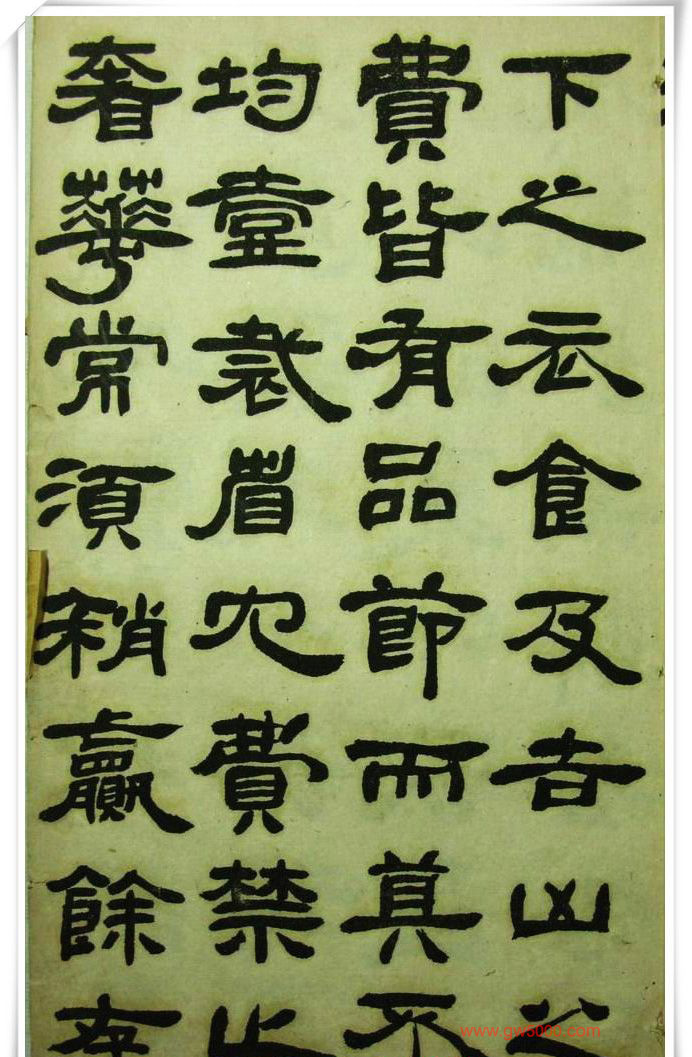 下之衣食及吉凶之
費皆有品節而莫不
均壹裁省冗費禁止
奢華常須稍贏餘存